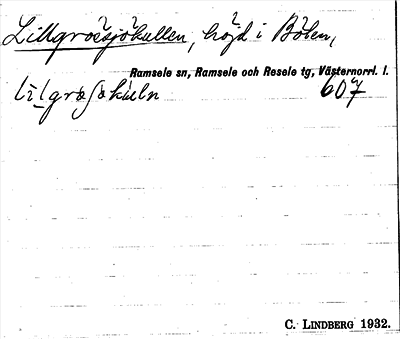 Lillgroesjökullen, höjd i Bölen,
Ramsele sn, Ramsele och Resele tg, Västernorrl. l.
607
C. LINDBERG 1932.